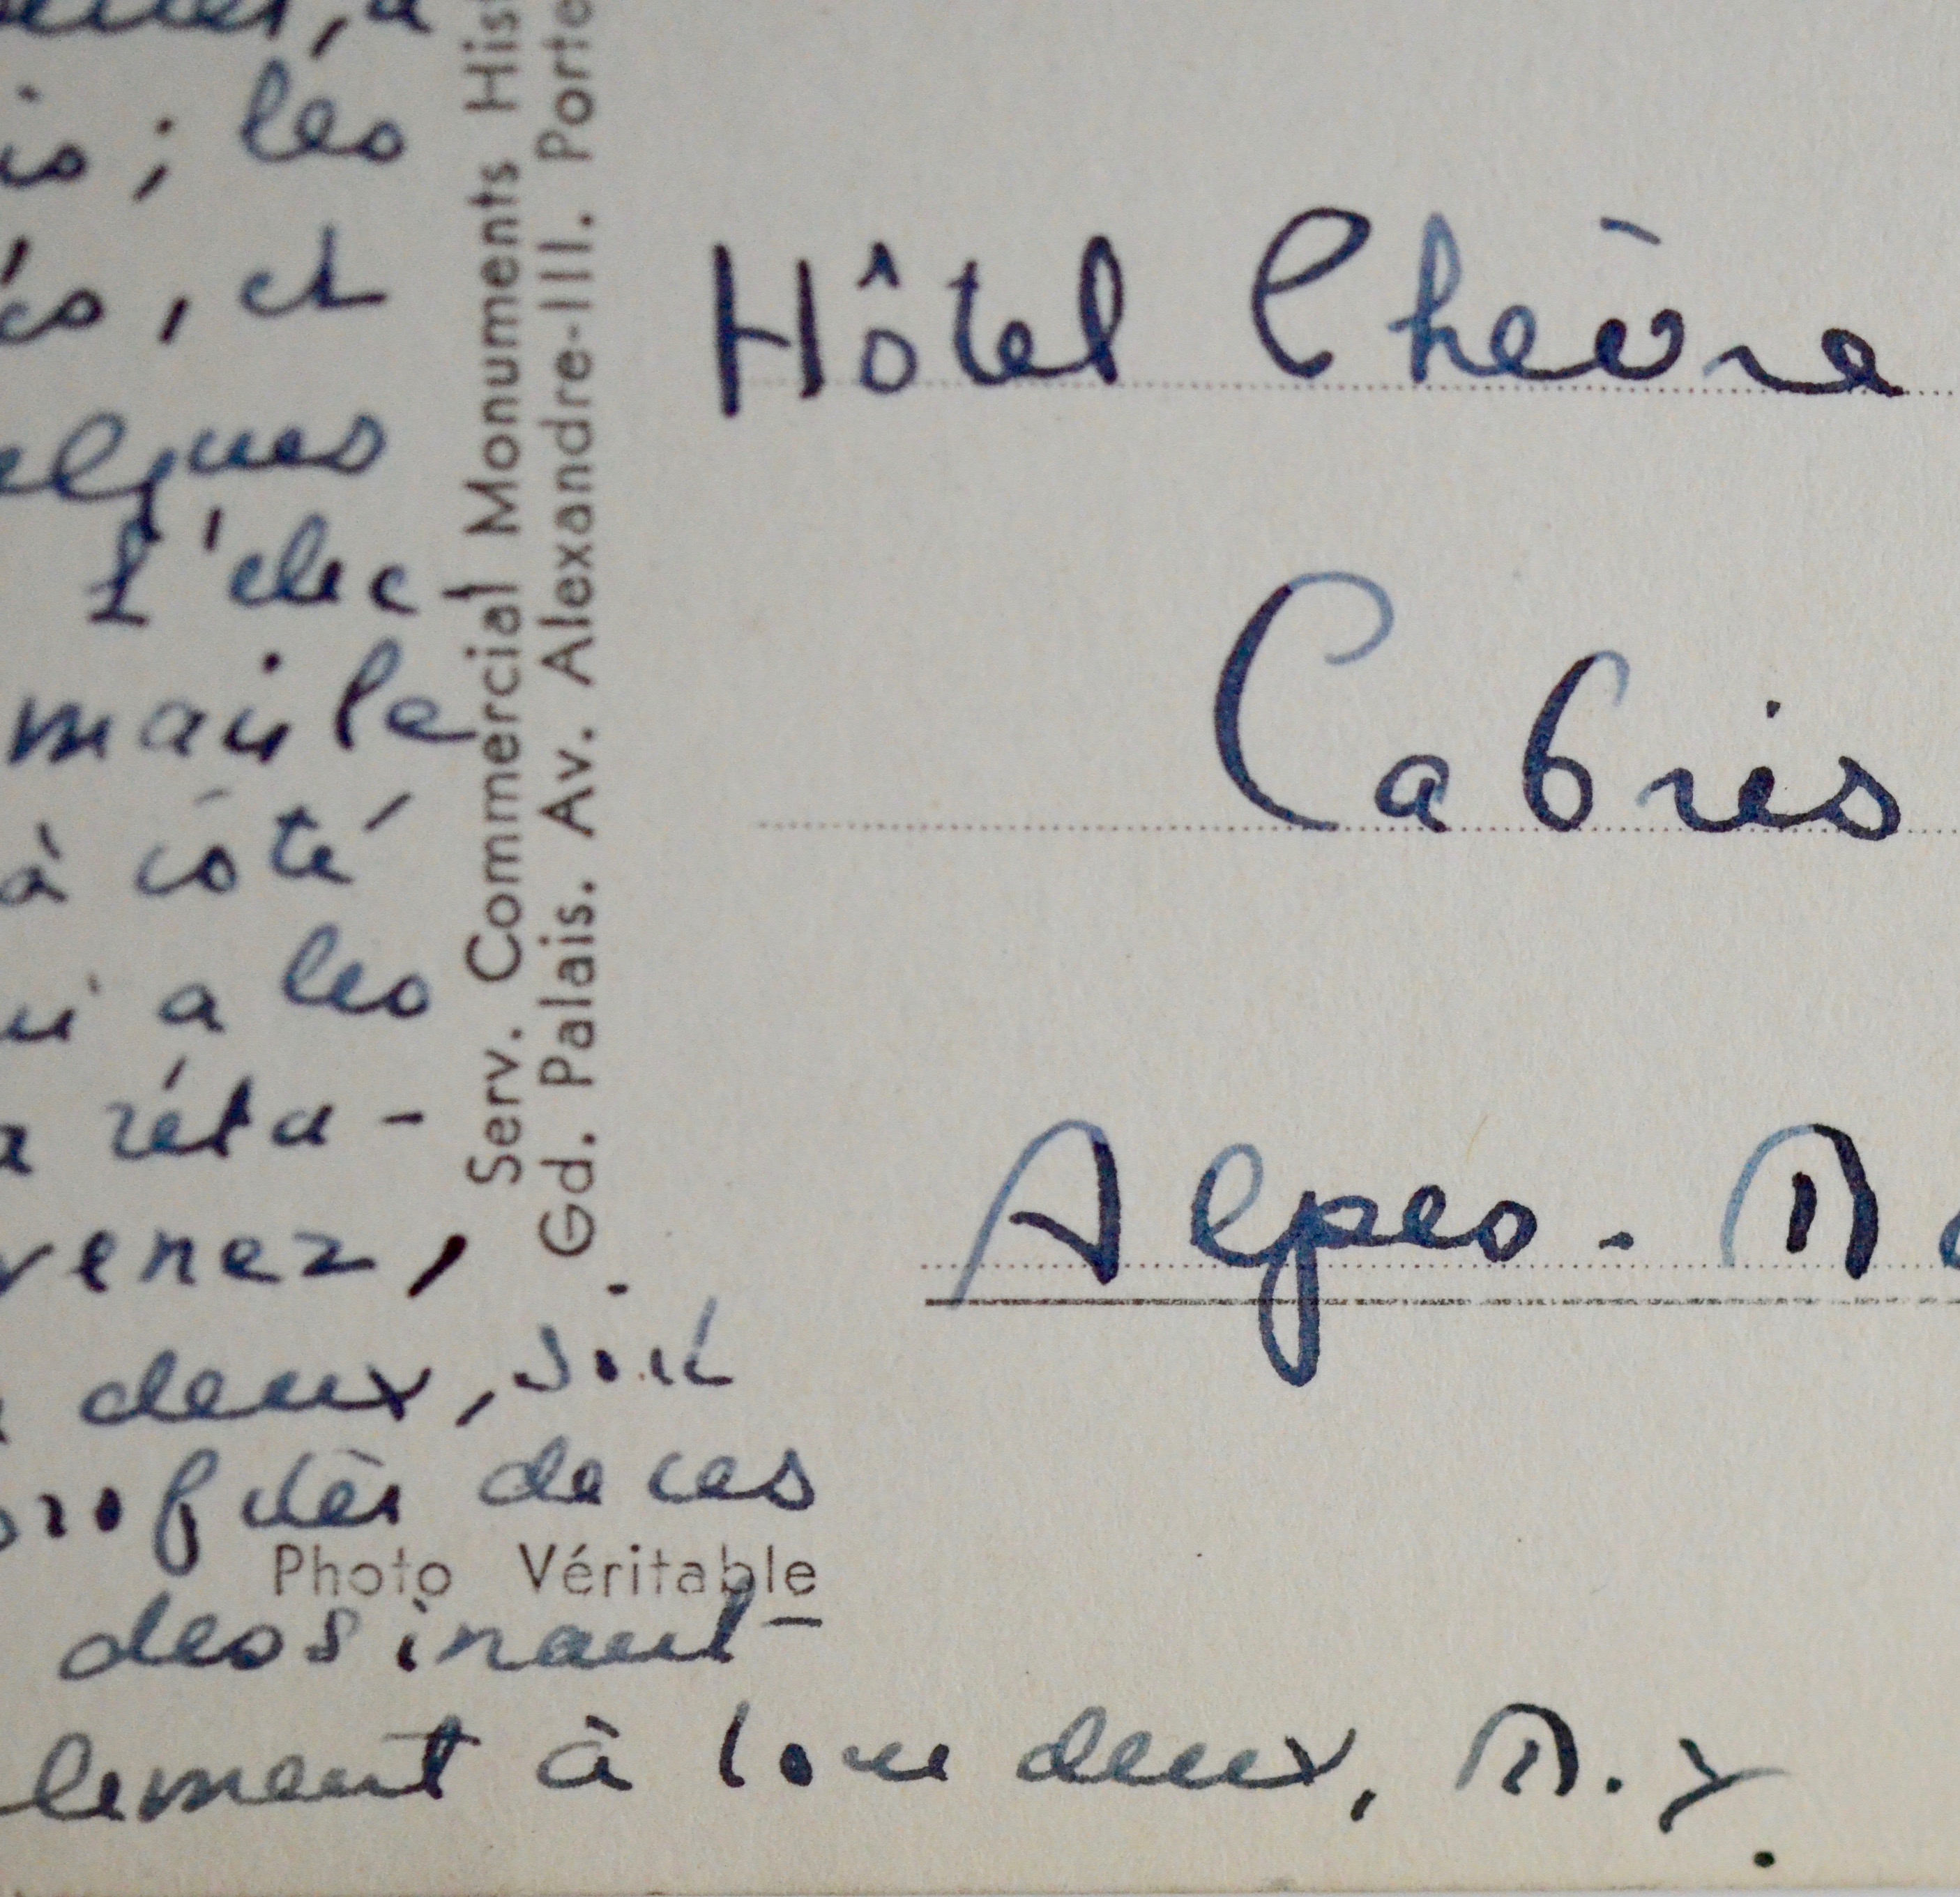 is ; les
és, et
elques
L'élec-
mais le
à côté
ui a les
a réta-
venez,
deux, soit
profiter de ces
dessinant
lement à tous deux, M. Y.
Serv. Commercial Monuments His
Gd. Palais. Av. Alexandre-III. Porte
Photo Véritable
Hôtel Chèvre
Cabris
Alpes-M